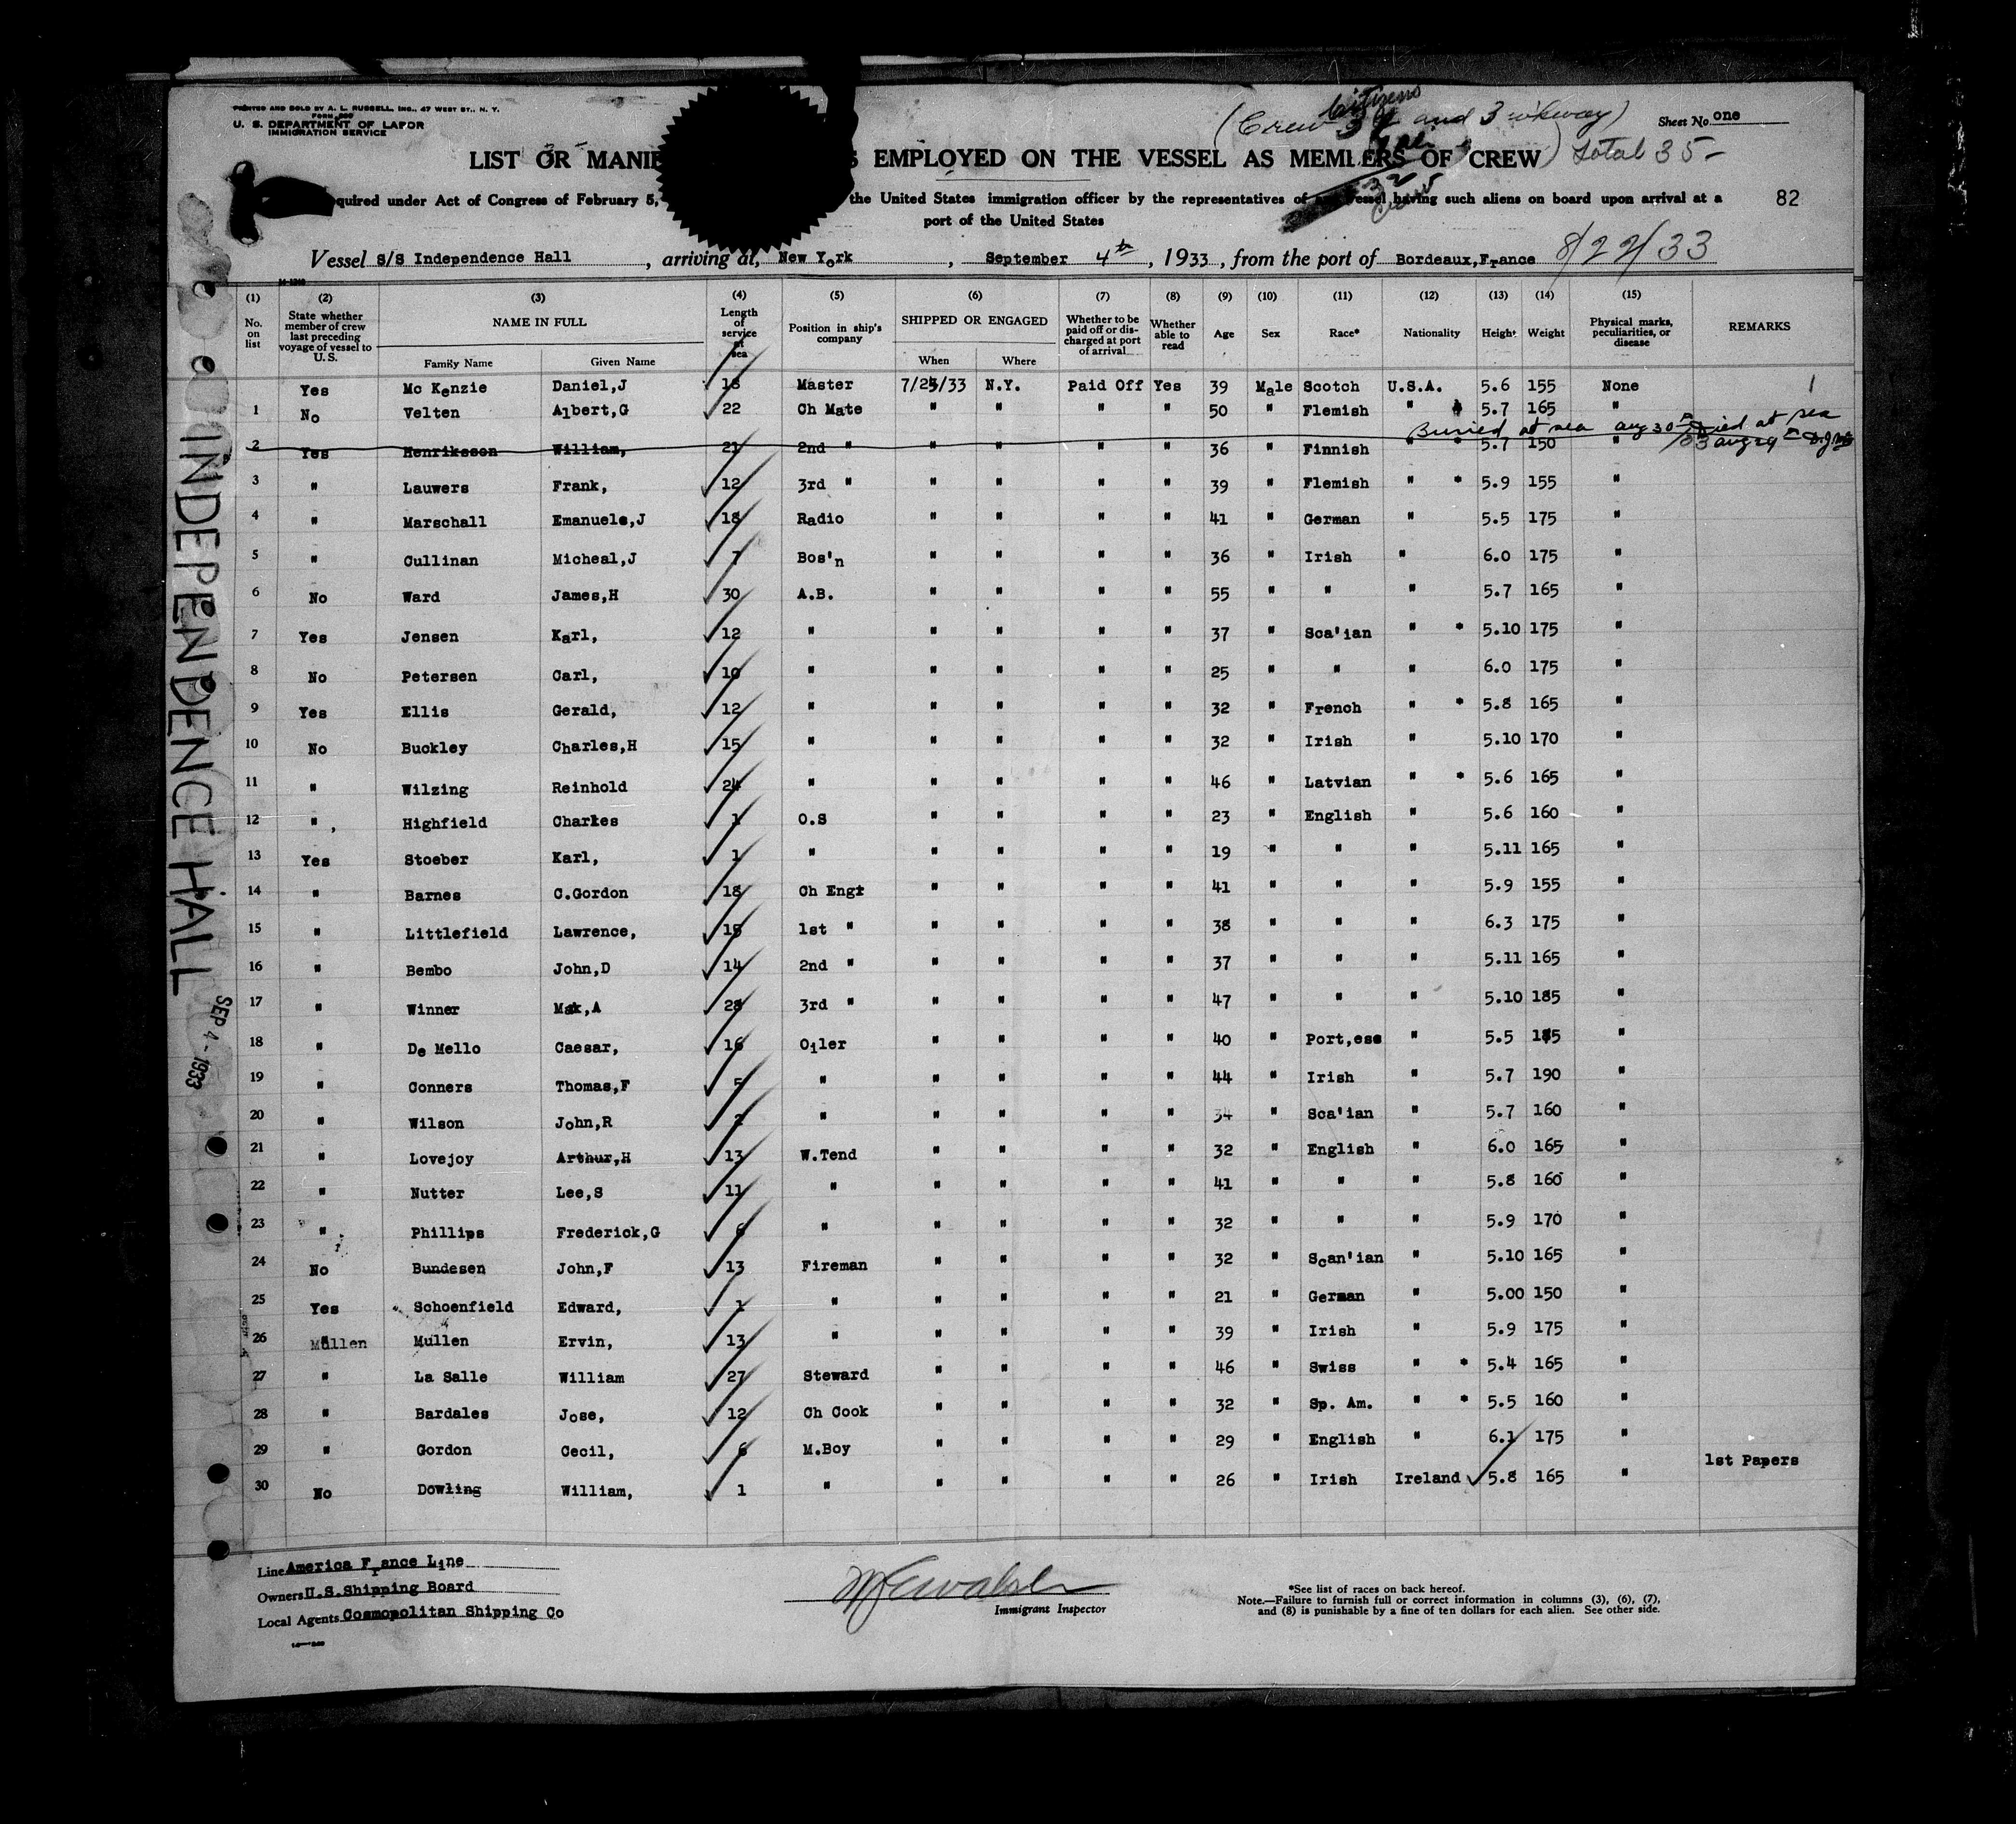 PRINTED AND SOLD BY A. L. RUSSELL, INC., 47 WEST ST., N. Y.
U. S. DEPARTMENT OF LABOR
IMMIGRATION SERVICE
(Crew Citizens and 3 wkway) Total 35-
Sheet No. one
LIST OR EMPLOYED ON THE VESSEL AS MEMBERS OF CREW
quired under Act of Congress of February 5, the United States immigration officer by the representatives of any vessel having such aliens on board upon arrival at a
port of the United States
82
Vessel S/S Independence Hall, arriving at, New York, September 4th, 1933, from the port of Bordeaux,France 8/22/33
(1) No. on list (2) State whether member of crew last preceding voyage of vessel to U.S. (3) NAME IN FULL Family Name Given Name (4) Length of service at sea (5) Position in ship's company (6) SHIPPED OR ENGAGED When Where (7) Whether to be paid off or discharged at port of arrival (8) Whether able to read (9) Age (10) Sex (11) Race* (12) Nationality (13) Height (14) Weight (15) Physical marks, peculiarities, or disease REMARKS
Yes Mc Kenzie Daniel,J 18 Master 7/25/33 N.Y. Paid Off Yes 39 Male Scotch U.S.A. 5.6 155 None 1
1 No Velten Albert,G 22 Ch Mate " " " " 50 " Flemish " 5.7 165 "
Buried at sea Aug 30th/33 Died at sea Aug 29th
2 Yes Henriksson William, 21 2nd " " " " " 36 " Finnish " * 5.7 150 "
3 " Lauwers Frank, 12 3rd " " " " " 39 " Flemish " * 5.9 155 "
4 " Marschall Emanuele,J 18 Radio " " " " 41 " German " 5.5 175 "
5 " Cullinan Micheal,J 7 Bos'n " " " " 36 " Irish " 6.0 175 "
6 No Ward James,H 30 A.B. " " " " 55 " " " 5.7 165 "
7 Yes Jensen Karl, 12 " " " " " 37 " Sca'ian " * 5.10 175 "
8 No Petersen Carl, 10 " " " " " 25 " " " 6.0 175 "
9 Yes Ellis Gerald, 12 " " " " " 32 " French " * 5.8 165 "
10 No Buckley Charles,H 15 " " " " " 32 " Irish " 5.10 170 "
11 " Wilzing Reinhold 24 " " " " " 46 " Latvian " * 5.6 165 "
12 " Highfield Charles 1 O.S " " " " 23 " English " 5.6 160 "
13 Yes Stoeber Karl, 1 " " " " " 19 " " " 5.11 165 "
14 " Barnes C.Gordon 18 Ch Engr " " " " 41 " " " 5.9 155 "
15 " Littlefield Lawrence, 15 1st " " " " " 38 " " " 6.3 175 "
16 " Bembo John,D 14 2nd " " " " " 37 " " " 5.11 165 "
17 " Winner Max,A 28 3rd " " " " " 47 " " " 5.10 185 "
18 " De Mello Caesar, 16 Oiler " " " " 40 " Port,ese " 5.5 185 "
19 " Conners Thomas,F 5 " " " " " 44 " Irish " 5.7 190 "
20 " Wilson John,R 2 " " " " " 34 " Sca'ian " 5.7 160 "
21 " Lovejoy Arthur,H 13 W.Tend " " " " 32 " English " 6.0 165 "
22 " Nutter Lee,S 11 " " " " " 41 " " " 5.8 160 "
23 " Phillips Frederick,G 6 " " " " " 32 " " " 5.9 170 "
24 No Bundesen John,F 13 Fireman " " " " 32 " Scan'ian " 5.10 165 "
25 Yes Schoenfield Edward, 1 " " " " " 21 " German " 5.00 150 "
26 Mullen Mullen Ervin, 13 " " " " " 39 " Irish " 5.9 175 "
27 " La Salle William 27 Steward " " " " 46 " Swiss " * 5.4 165 "
28 " Bardales Jose, 12 Ch Cook " " " " 32 " Sp. Am. " * 5.5 160 "
29 " Gordon Cecil, 6 M.Boy " " " " 29 " English " 6.1 175 "
30 No Dowling William, 1 " " " " " 26 " Irish Ireland 5.8 165 " 1st Papers
INDEPENDENCE HALL
SEP 4 - 1933
Line America France Line
Owners U.S.Shipping Board
Local Agents Cosmopolitan Shipping Co
Immigrant Inspector
*See list of races on back hereof.
Note.—Failure to furnish full or correct information in columns (3), (6), (7),
and (8) is punishable by a fine of ten dollars for each alien. See other side.